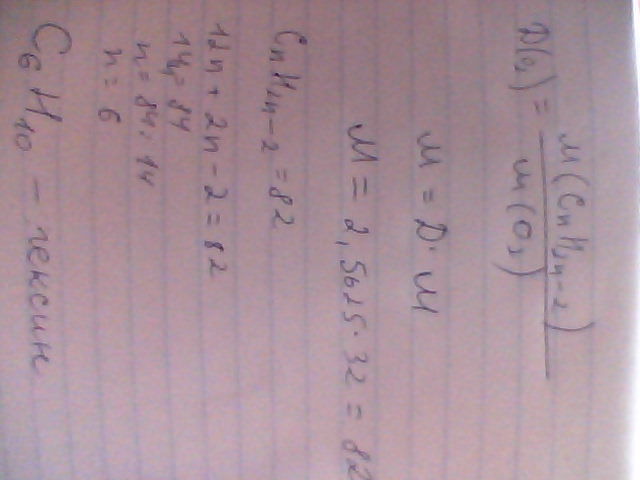 D(O₂) = M(CnH2n-2) / M(O₂)
M = D · M
M = 2,5625 · 32 = 82
CnH2n-2 = 82
12n + 2n - 2 = 82
14n = 84
n = 84 : 14
n = 6
C6H10 - гексин